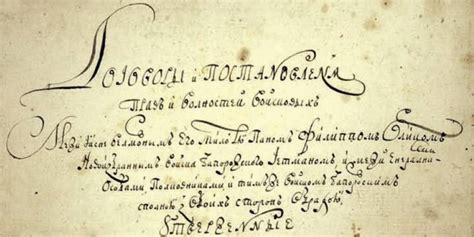 Договоры и Постановленя
Правъ и волностей войсковыхъ
Межи Ясне велможнымъ Его Паномъ Филиппомъ Орликомъ
Новоизбраннымъ войска Запорожского Гетманомъ, и межи Енералними
Особами Полковниками, и тимъ же войскомъ Запорозскимъ
сполною з обоихъ сторонъ обрадою,
Утверженные